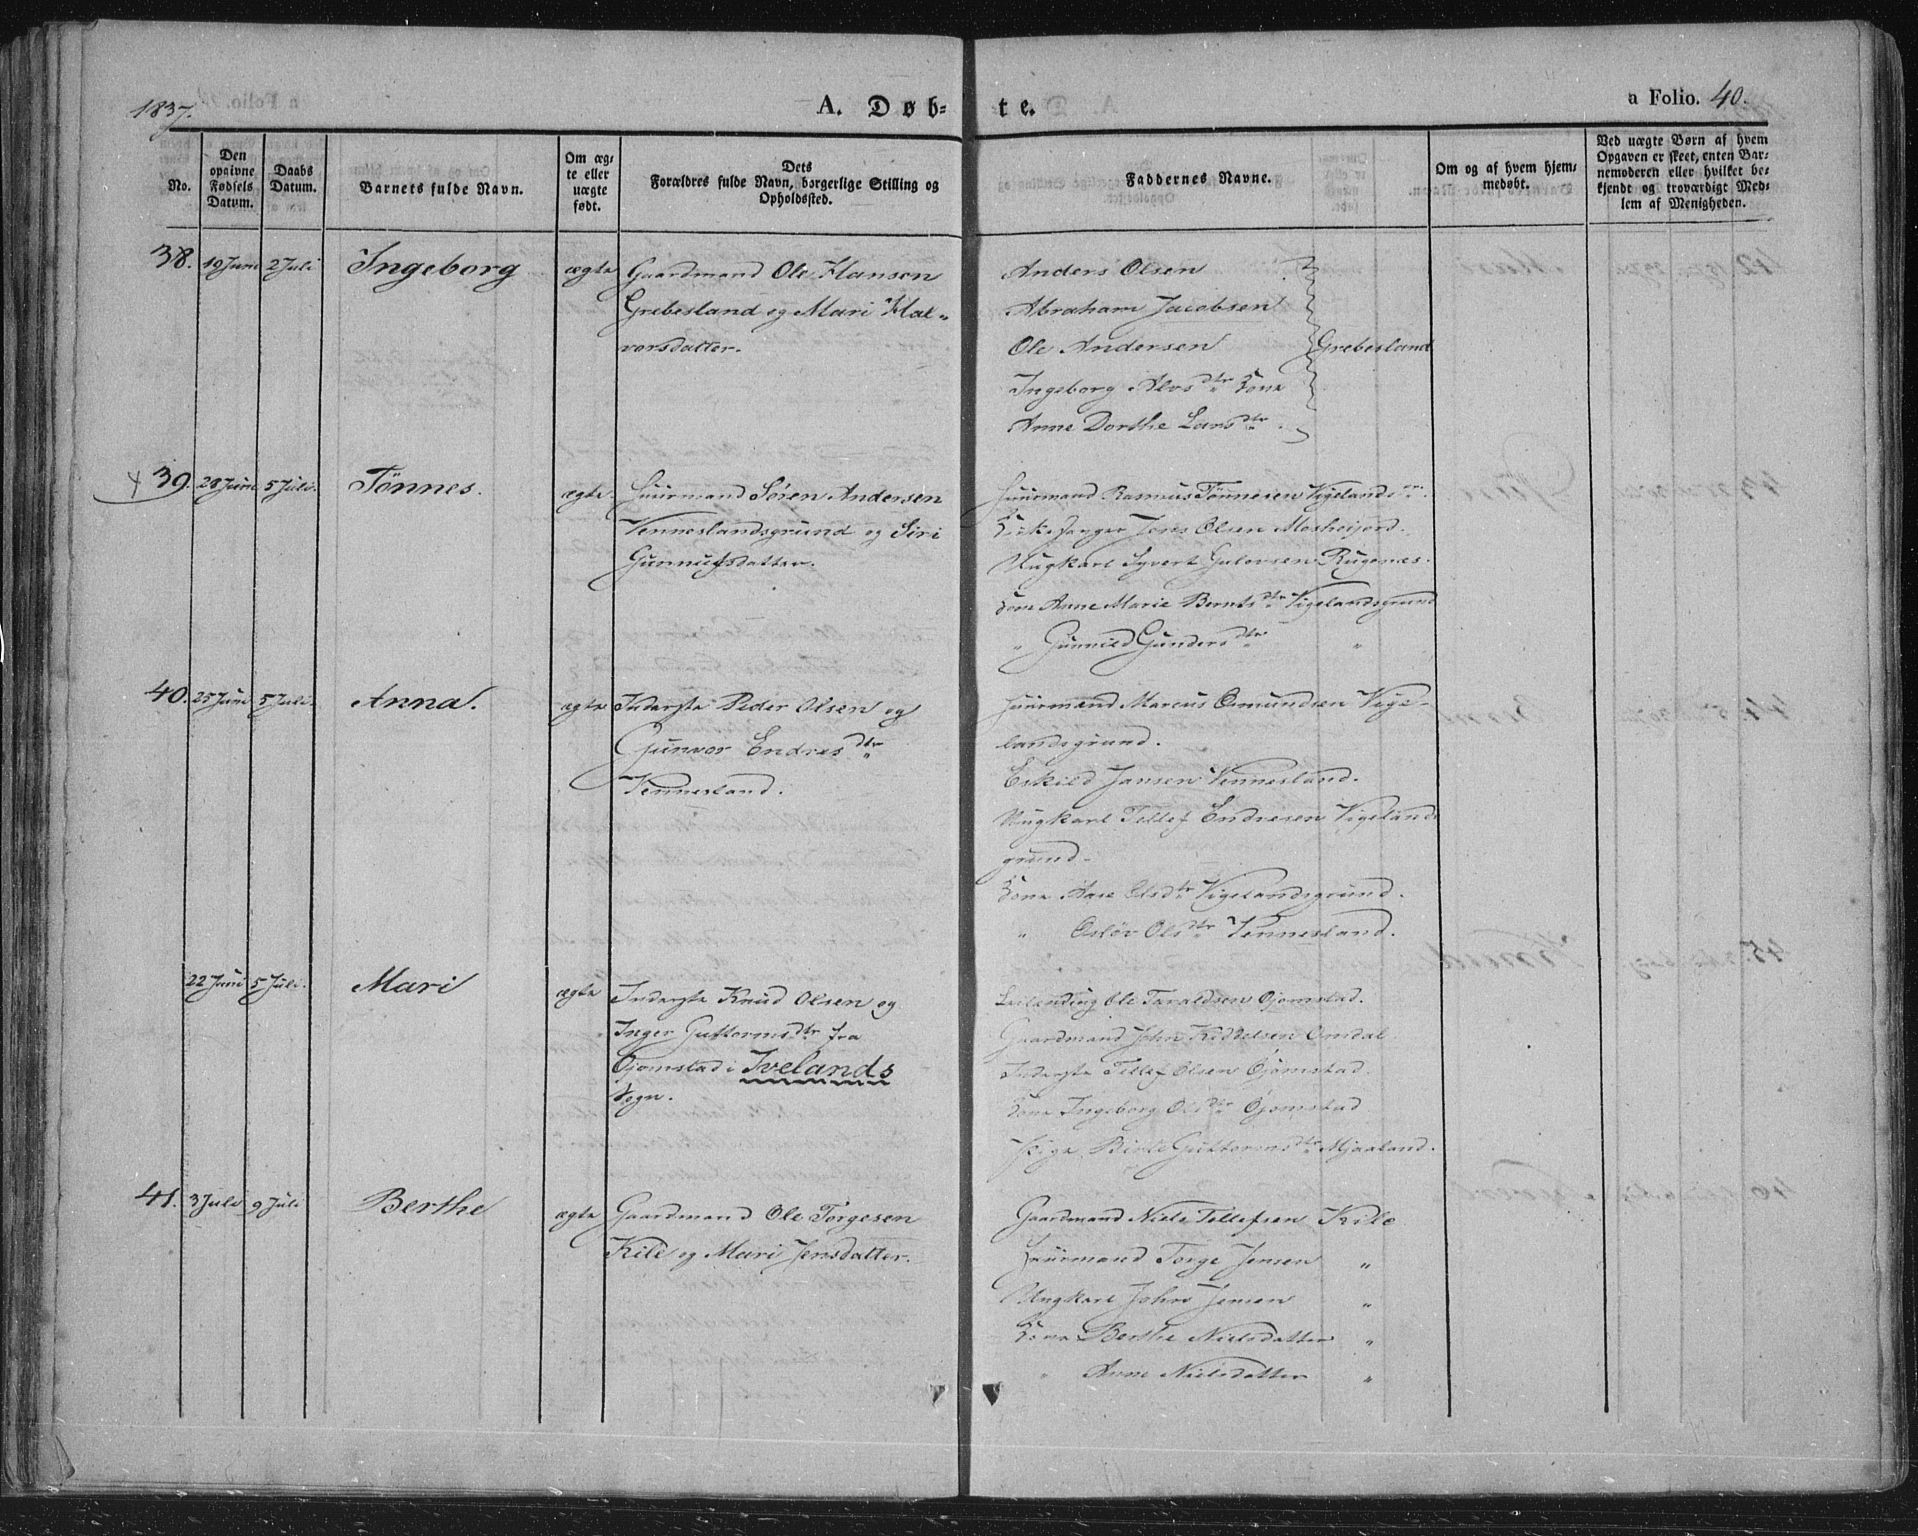 1837.
A. Døb-
te.
a Folio. 40.
No.
Den opgivne Fødsels Datum.
Daabs Datum.
Barnets fulde Navn.
Om ægte eller uægte født.
Dets Forældres fulde Navn, borgerlige Stilling og Opholdssted.
Faddernes Navne.
Om og af hvem hjemmedøbt.
Ved uægte Børn af hvem Opgaven er skeet, enten Barnemoderen eller hvilket bekjendt og troværdigt Medlem af Menigheden.
38. 19 Juni 2 Juli Ingeborg ægte Gaardmand Ole Hansen
Grebesland og Mari Hal-
vorsdatter.
Anders Olsen
Abraham Jacobsen
Ole Andersen Grebesland
Ingeborg Alvsdtr Kone
Anne Dorthe Larsdtr.
39. 28 Juni 5 Juli. Tønnes. ægte. Huurmand Søren Andersen
Venneslandsgrund og Siri
Gunnufsdatter.
Huurmand Rasmus Tønnesen Vigelandsgr.
Jens Olsen Mosheijord.
Ungkarl Syvert Gulovsen Rugenes.
Kone Anne Marie Berntsdtr Vigelandsgrund
" Gunnild Gundersdtr "
40. 25 Juni 5 Juli. Anna. ægte Inderste Peder Olsen og
Gunvor Endresdtr
Vennesland.
Huurmand Marcus Osmundsen Vige-
landsgrund.
Eskild Jansen Vennesland.
Ungkarl Tellef Endresen Vigelands
grund.
Kone Aase Olsdtr Vigelandsgrund.
" Osløv Olsdtr Vennesland.
22 Juni 5 Juli. Mari ægte Inderste Knud Olsen og
Inger Guttormsdtr fra
Ojomstad i Ivelands
Sogn.
Leilænding Ole Taraldsen Ojomstad.
Gaardmand John Kittelsen Omdal
Inderste Tellef Olsen Ojomstad.
Kone Ingeborg Olsdtr Ojomstad
Pige Birle Guttormsdtr Mjaaland.
41. 3 Juli 9 Juli Berthe ægte Gaardmand Ole Torgesen
Kile og Mari Jensdatter.
Gaardmand Niels Tellefsen Kile
Huurmand Torge Jensen "
Ungkarl John Jensen "
Kone Berthe Nielsdatter "
" Anne Nielsdatter "